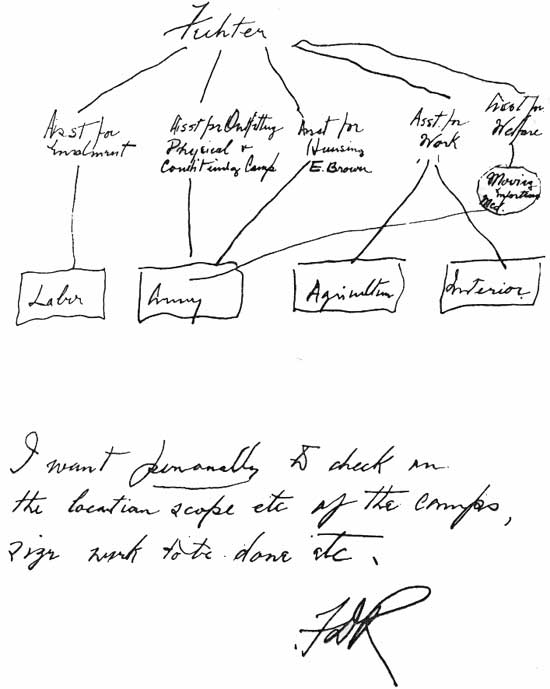 Fechter
Asst for
Enrolment
Asst for Outfitting
Physical +
Conditioning Camp
Asst for
Housing
E. Brown
Asst for
Work
Asst for
Welfare
Moving
Med.
Labor
Army
Agriculture
Interior
I want personally to check on
the location scope etc of the camps,
size work to be done etc.
FDR